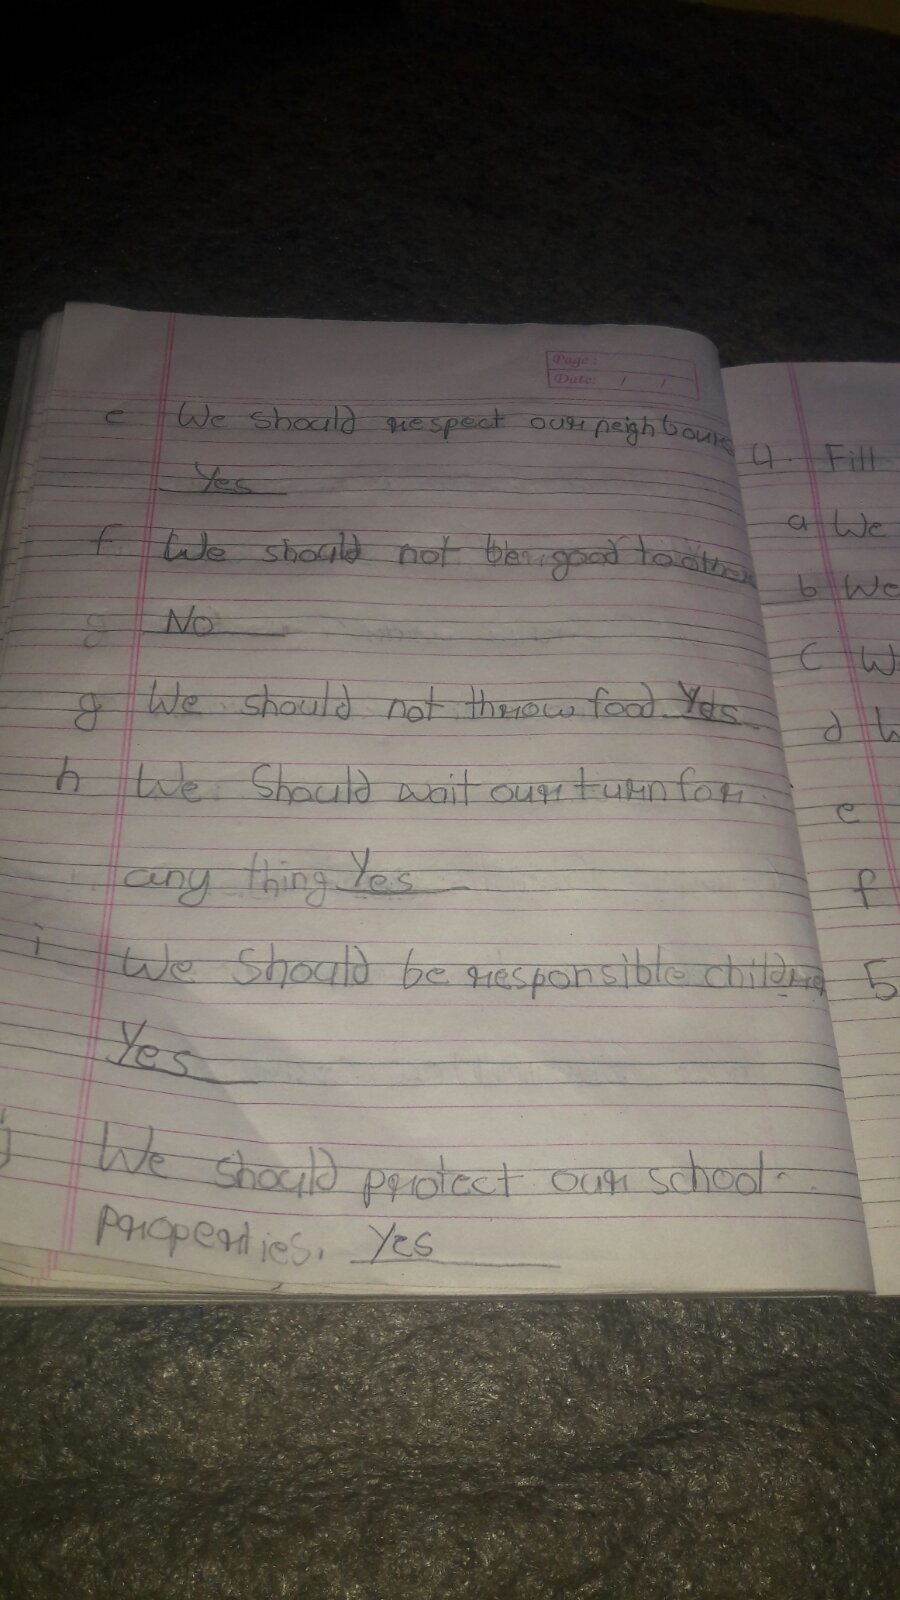 Page:
Date: / /
e We should respect our neighbours
Yes
f We should not be good to other
g No
g We should not throw food Yes
h We should wait our turn for
any thing Yes
i We should be responsible
Yes
j We should protect our school
properties. Yes
4. Fill
a We
b We
c W
d
e
f
5